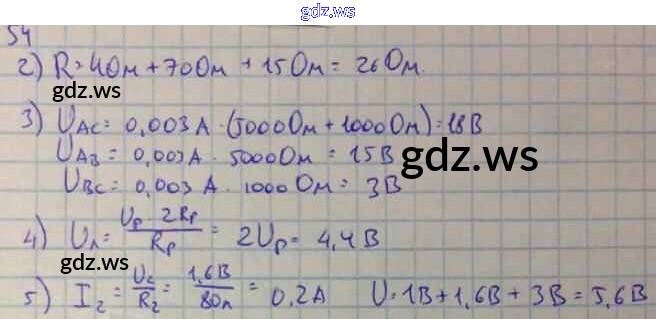 gdz.ws
54
2) R = 4Ом + 70Ом + 15Ом = 26Ом.
gdz.ws
3) UAC = 0,003А · (5000Ом + 1000Ом) = 18В
UAB = 0,003А · 5000Ом = 15В
gdz.ws
UBC = 0,003А · 1000Ом = 3В
4) Uл = Uр · 2Rр / Rр = 2Uр = 4,4В
gdz.ws
5) I2 = U2 / R2 = 1,6В / 8Ом = 0,2А U = 1В + 1,6В + 3В = 5,6В